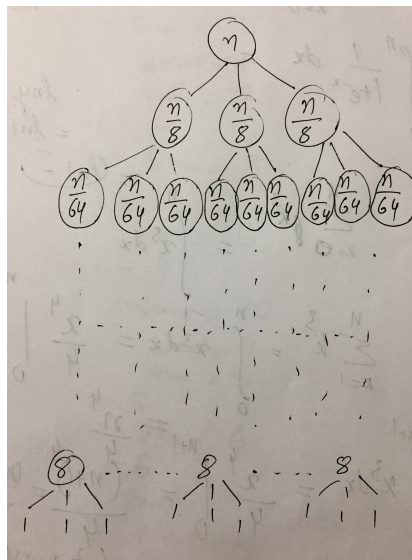 n
n/8 n/8 n/8
n/64 n/64 n/64 n/64 n/64 n/64 n/64 n/64 n/64
8 8 8
1 1 1 1 1 1 1 1 1